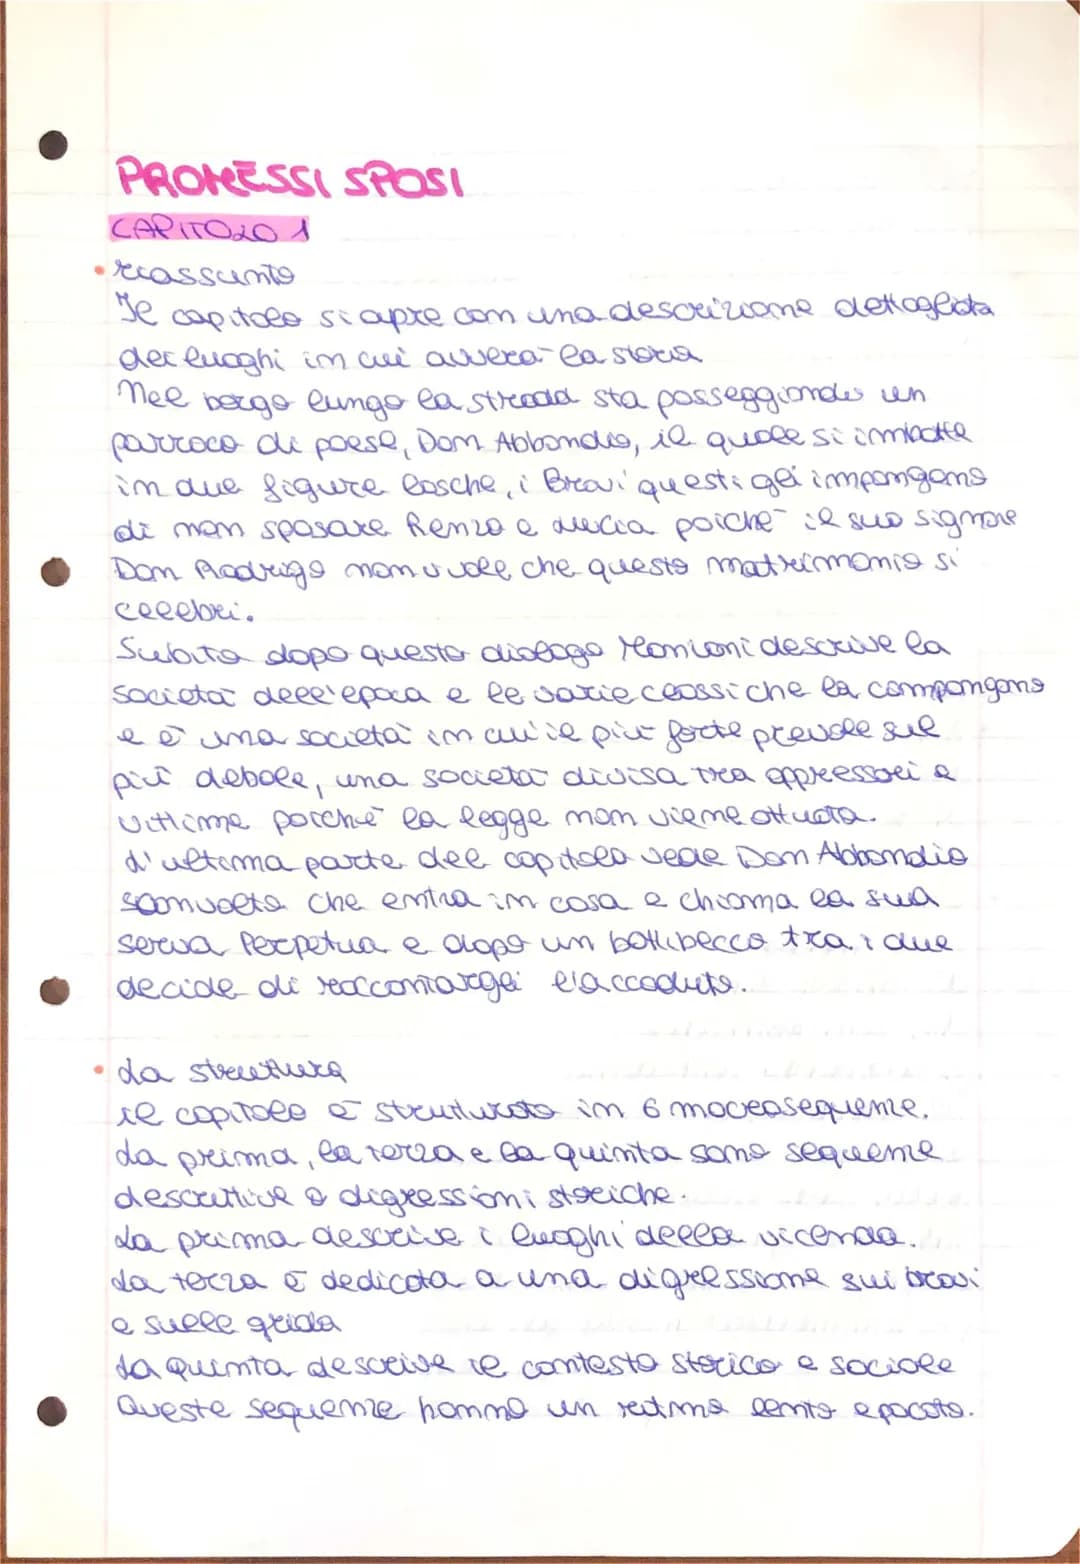 PROMESSI SPOSI
CAPITOLO 1
• riassunto
Il capitolo si apre con una descrizione dettagliata
dei luoghi in cui avverà la storia
Nel borgo lungo la strada sta passeggiando un
parroco di paese, Don Abbondio, il quale si imbatte
in due figure losche, i Bravi questi gli impongono
di non sposare Renzo e Lucia poiché il suo signore
Don Rodrigo non vuole che questo matrimonio si
celebri.
Subito dopo questo dialogo Manzoni descrive la
società dell'epoca e le varie classi che la compongono
e è una società in cui il più forte prevale sul
più debole, una società divisa tra oppressori e
vittime poiché la legge non viene attuata.
L'ultima parte del capitolo vede Don Abbondio
sconvolto che entra in casa e chiama la sua
serva Perpetua e dopo un battibecco tra i due
decide di raccontargli l'accaduto.
• La struttura
il capitolo è strutturato in 6 macrosequenze.
La prima, la terza e la quinta sono sequenze
descrittive o digressioni storiche.
La prima descrive i luoghi della vicenda.
La terza è dedicata a una digressione sui bravi
e sulle grida
La quinta descrive il contesto storico e sociale
Queste sequenze hanno un ritmo lento e pacato.